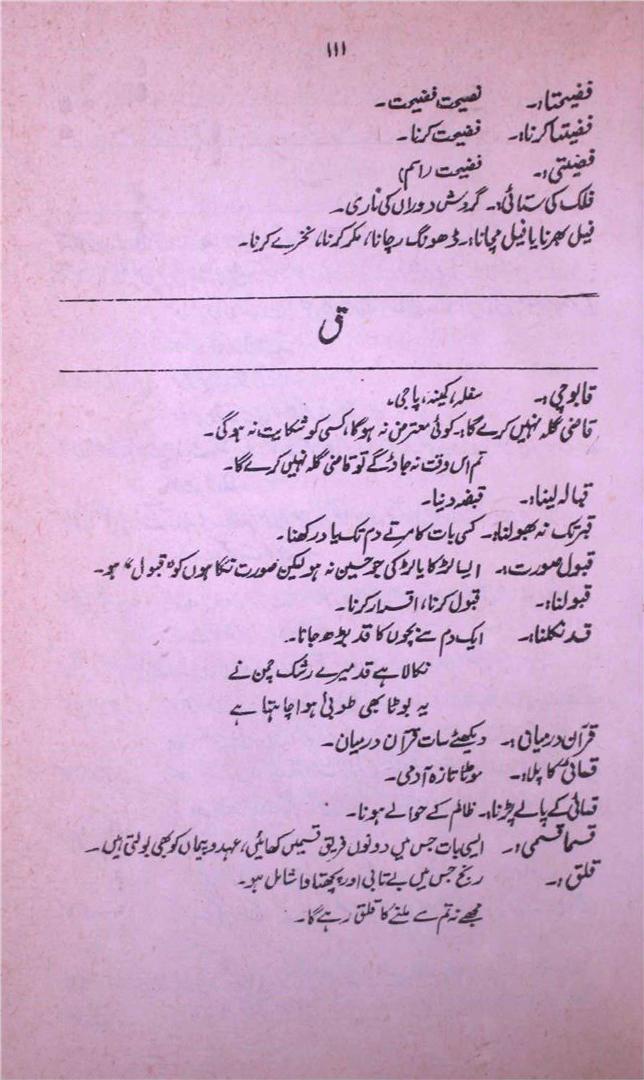 ۱۱۱
فضیحتا:۔ نصیحت فضیحت۔
فضیتا کرنا:۔ فضیحت کرنا۔
فضیتی:۔ فضیحت (اسم)
فلک کی ستائی:۔ گردش دوراں کی ماری۔
فیل بھرنا یا فیل مچانا:۔ ڈھونگ رچانا، مکر کرنا، نخرے کرنا۔
ق
قابوچی:۔ سفلہ، کمینہ، پاجی۔
قاضی گلہ نہیں کرے گا:۔ کوئی معترض نہ ہوگا، کسی کو شکایت نہ ہوگی۔
تم اس وقت نہ جاؤ گے تو قاضی گلہ نہیں کرے گا۔
قبالہ لینا:۔ قبضہ دینا۔
قبر تک نہ بھولنا:۔ کسی بات کا مرتے دم تک یاد رکھنا۔
قبول صورت:۔ ایسا لڑکا یا لڑکی جو حسین نہ ہو لیکن صورت نگاہوں کو "قبول" ہو۔
قبولنا:۔ قبول کرنا، اقرار کرنا۔
قد نکلنا:۔ ایک دم سے بچوں کا قد بڑھ جانا۔
نکالا ہے قد میرے رشک چمن نے
یہ بوٹا بھی طوبیٰ ہوا چاہتا ہے
قرآن درمیانی:۔ دیکھئے سات قرآن درمیان۔
قصائی کا پلا:۔ موٹا تازہ آدمی۔
قصائی کے پالے پڑنا:۔ ظالم کے حوالے ہونا۔
قسما قسمی:۔ ایسی بات جس میں دونوں فریق قسمیں کھائیں، عہد و پیماں کو بھی بولتی ہیں۔
قلق:۔ رنج جس میں بے تابی اور پچھتاوا شامل ہو۔
مجھے نہ تم سے ملنے کا قلق رہے گا۔